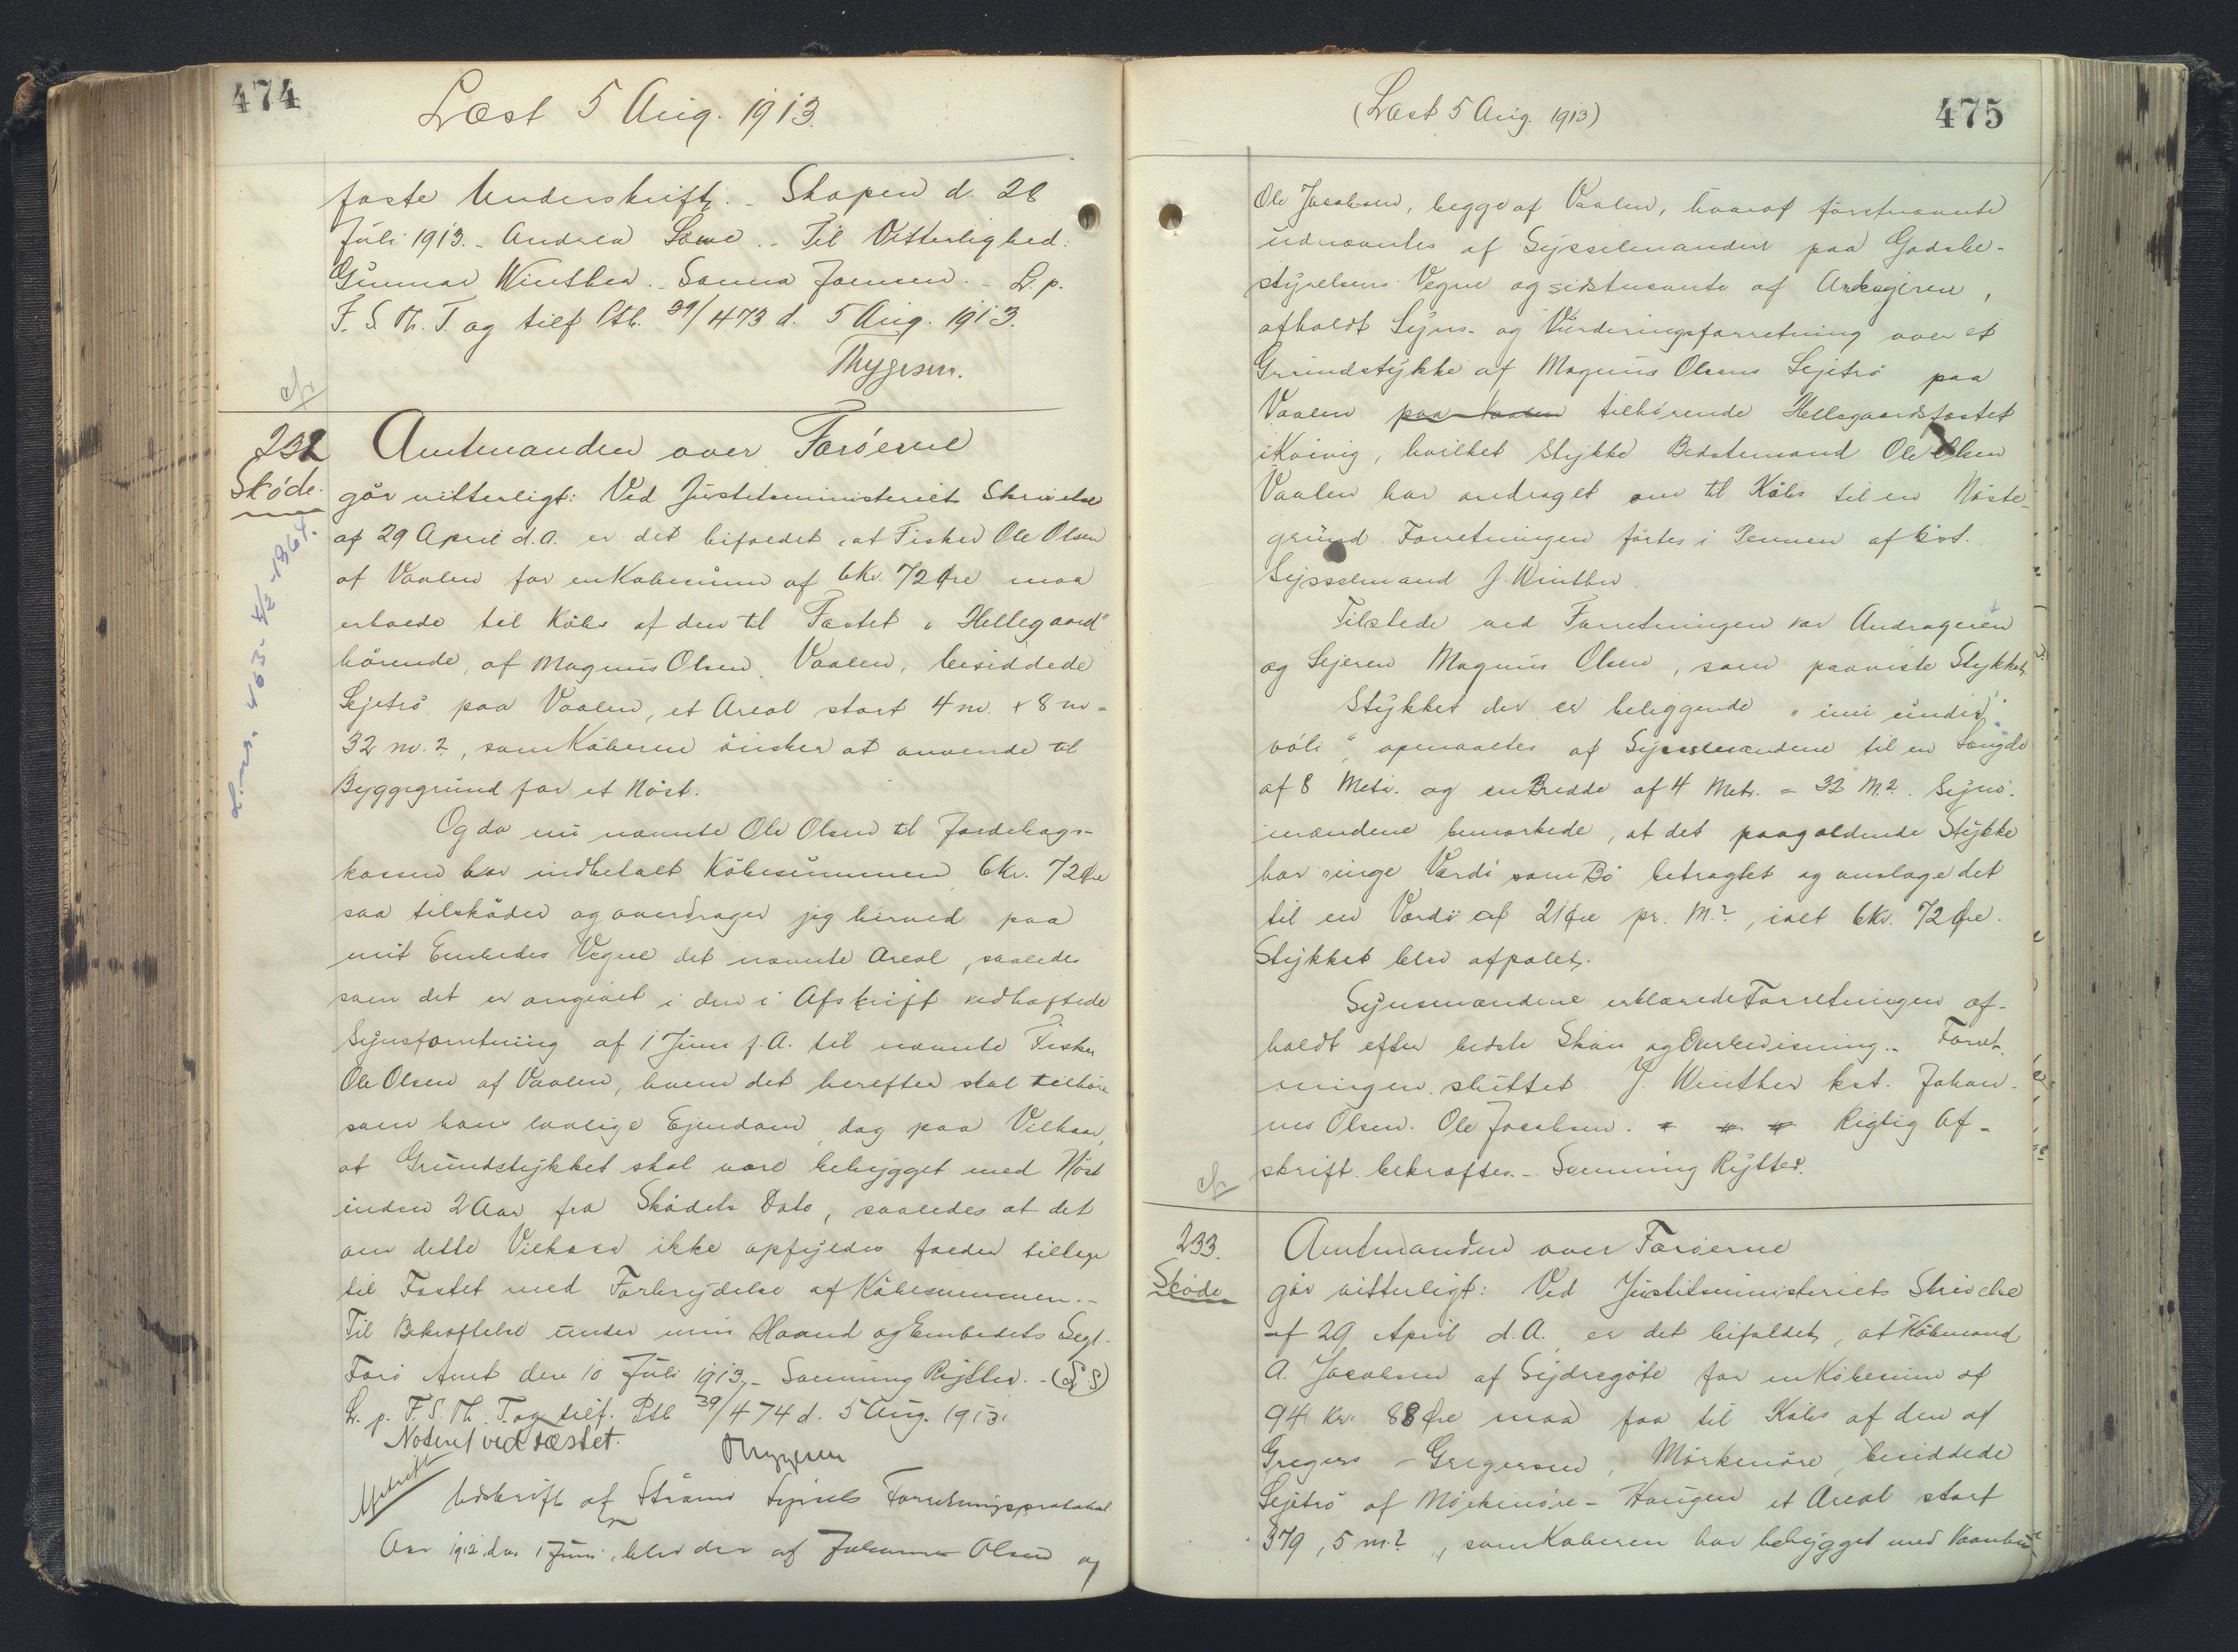 474
Læst 5 Aug. 1913.
faste Underskrift. - Skopen d. 28
Juli 1913. - Andrea - Til Vitterlighed:
Gunnar Winther. - Sanna Joensen. - L. p.
F. S. Th. T. og tilf Ptb. 39/473 d. 5 Aug. 1913.
Thygesen.
232
Skøde.
Amtmanden over Færøerne
gör vitterligt: Ved Justitsministeriets Skrivelse
af 29 April d.A. er det bifaldet, at Fisker Ole Olsen
af Vaalen for en Købesum af 6 Kr. 72 Øre maa
erholde til Købs af den til Fæstet „Hellegaard"
hörende, af Magnus Olsen, Vaalen, besiddede
Lejetrö paa Vaalen, et Areal stort 4 m. x 8 m =
32 m.2, som Köberen önsker at anvende til
Byggegrund for et Nöst.
Og da nu nævnte Ole Olsen til Jordebogs-
kassen har indbetalt Köbesummen 6 Kr. 72 Øre
saa tilsköder og overdrager jeg herved paa
mit Embedes Vegne det nævnte Areal, saaledes
som det er angivet i den i Afskrift vedhæftede
Synsforretning af 1 Juni f.A. til nævnte Fisker
Ole Olsen af Vaalen, hvem det herefter skal tilhöre
som hans lovlige Ejendom, dog paa Vilkaar,
at Grundstykket skal være bebygget med Nöst
inden 2 Aar fra Sködets Dato, saaledes at det
om dette Vilkaar ikke opfyldes falder tilbage
til Fæstet med Forbrydelse af Köbesummen. -
Til Bekræftelse under min Haand og Embedets Segl.
Færö Amt den 10 Juli 1913. - Svenning Rytter. - (L S)
L. p. F. S. Th. T. og tilf. Ptb 39/474 d. 5 Aug. 1913.
Noteret ved Fæstet.
Thygesen
Afskrift
Udskrift af Strömö Syssels Forretningsprotokol.
Aar 1912 den 1 Juni blev der af Johannes Olsen og
475
(Læst 5 Aug. 1913)
Ole Jacobsen, begge af Vaalen, hvoraf förstnævnte
udnævntes af Sysselmanden paa Godsbe-
styrelsens Vegne og sidstnævnte af Andrageren,
afholdt Syns- og Vurderingsforretning over et
Grundstykke af Magnus Olsens Lejetrö paa
Vaalen paa Vaalen tilhörende Hellegaardsfæstet
i Kvivig, hvilket Stykke Bedstemand Ole Olsen
Vaalen har andraget om til Köbs til en Nöste-
grund. Forretningen förtes i Pennen af kst.
Sysselmand J. Winther.
Tilstede ved Forretningen var Andrageren
og Lejeren Magnus Olsen, som paaviste Stykket.
Stykket der er beliggende „inni undir
völi", opmaaltes af Synsmændene til en Længde
af 8 Metr. og en Bredde af 4 Metr. = 32 M.2. Syns-
mændene bemærkede, at det paagældende Stykke
har ringe Værdi som Bö betragtet og anslage det
til en Værdi af 21 Øre pr. M.2, ialt 6 Kr. 72 Øre.
Stykket blev afpælet.
Synsmændene erklærede Forretningen af-
holdt efter bedste Skön og Overbevisning. - Forret-
ningen sluttet. J. Winther kst. Johan-
nes Olsen. Ole Jacobsen. Rigtig Af-
skrift bekræftes. - Svenning Rytter.
233.
Skøde
Amtmanden over Færöerne
gör vitterligt: Ved Justitsministeriets Skrivelse
af 29 April d.A. er det bifaldet, at Köbmand
A. Jacobsen af Sydregöte for en Köbesum af
94 Kr. 88 Øre maa faa til Köbs af den af
Gregers Gregersen, Mörkenöre, besiddede
Lejetrö af Mörkenöre-Haugen et Areal stort
379,5 m.2, som Köberen har bebygget med Vaanhus